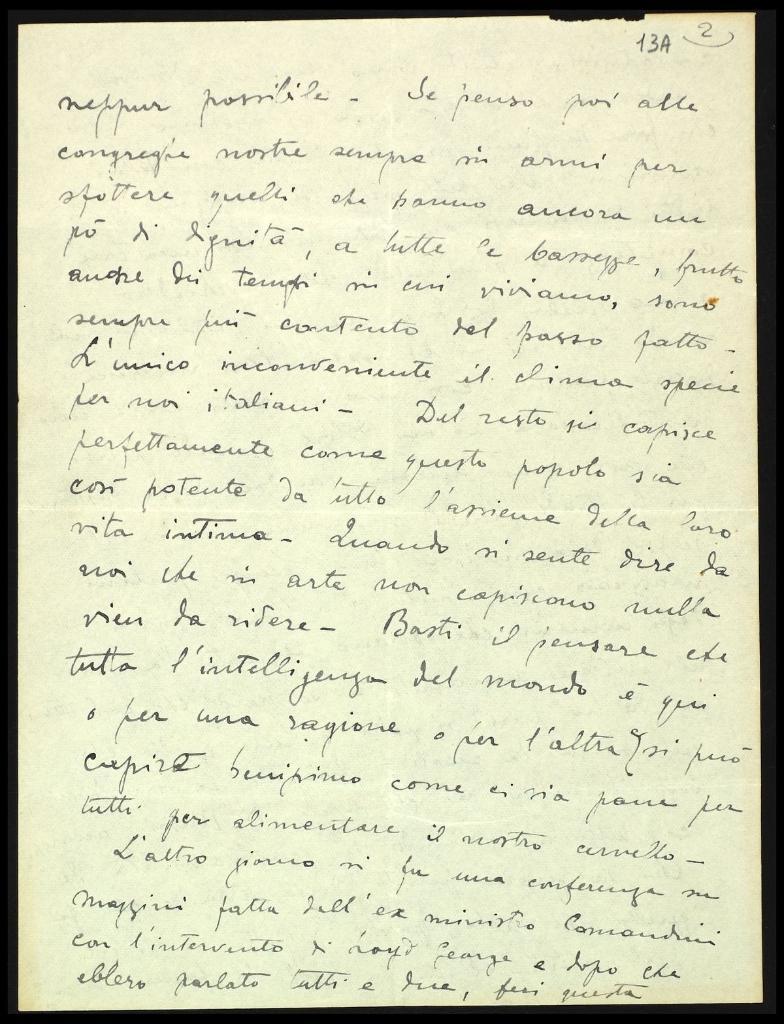 13A 2
neppur possibile - Se penso poi alle
congreghe nostre sempre in armi per
sfottere quelli che hanno ancora un
pò di dignità, a tutte le bassezze, frutto
anche dei tempi in cui viviamo, sono
sempre più contento del passo fatto -
L'unico inconveniente il clima specie
per noi italiani - Del resto si capisce
perfettamente come questo popolo sia
così potente da tutto l'assieme della loro
vita intima - Quando si sente dire da
noi che in arte non capiscono nulla
vien da ridere - Basti il pensare che
tutta l'intelligenza del mondo è qui
o per una ragione o per l'altra e si può
capire benissimo come ci sia pane per
tutti per alimentare il nostro cervello -
L'altro giorno vi fu una conferenza su
Mazzini fatta dall'ex ministro Comandini
con l'intervento di Loyd George e dopo che
ebbero parlato tutti e due, feci questa